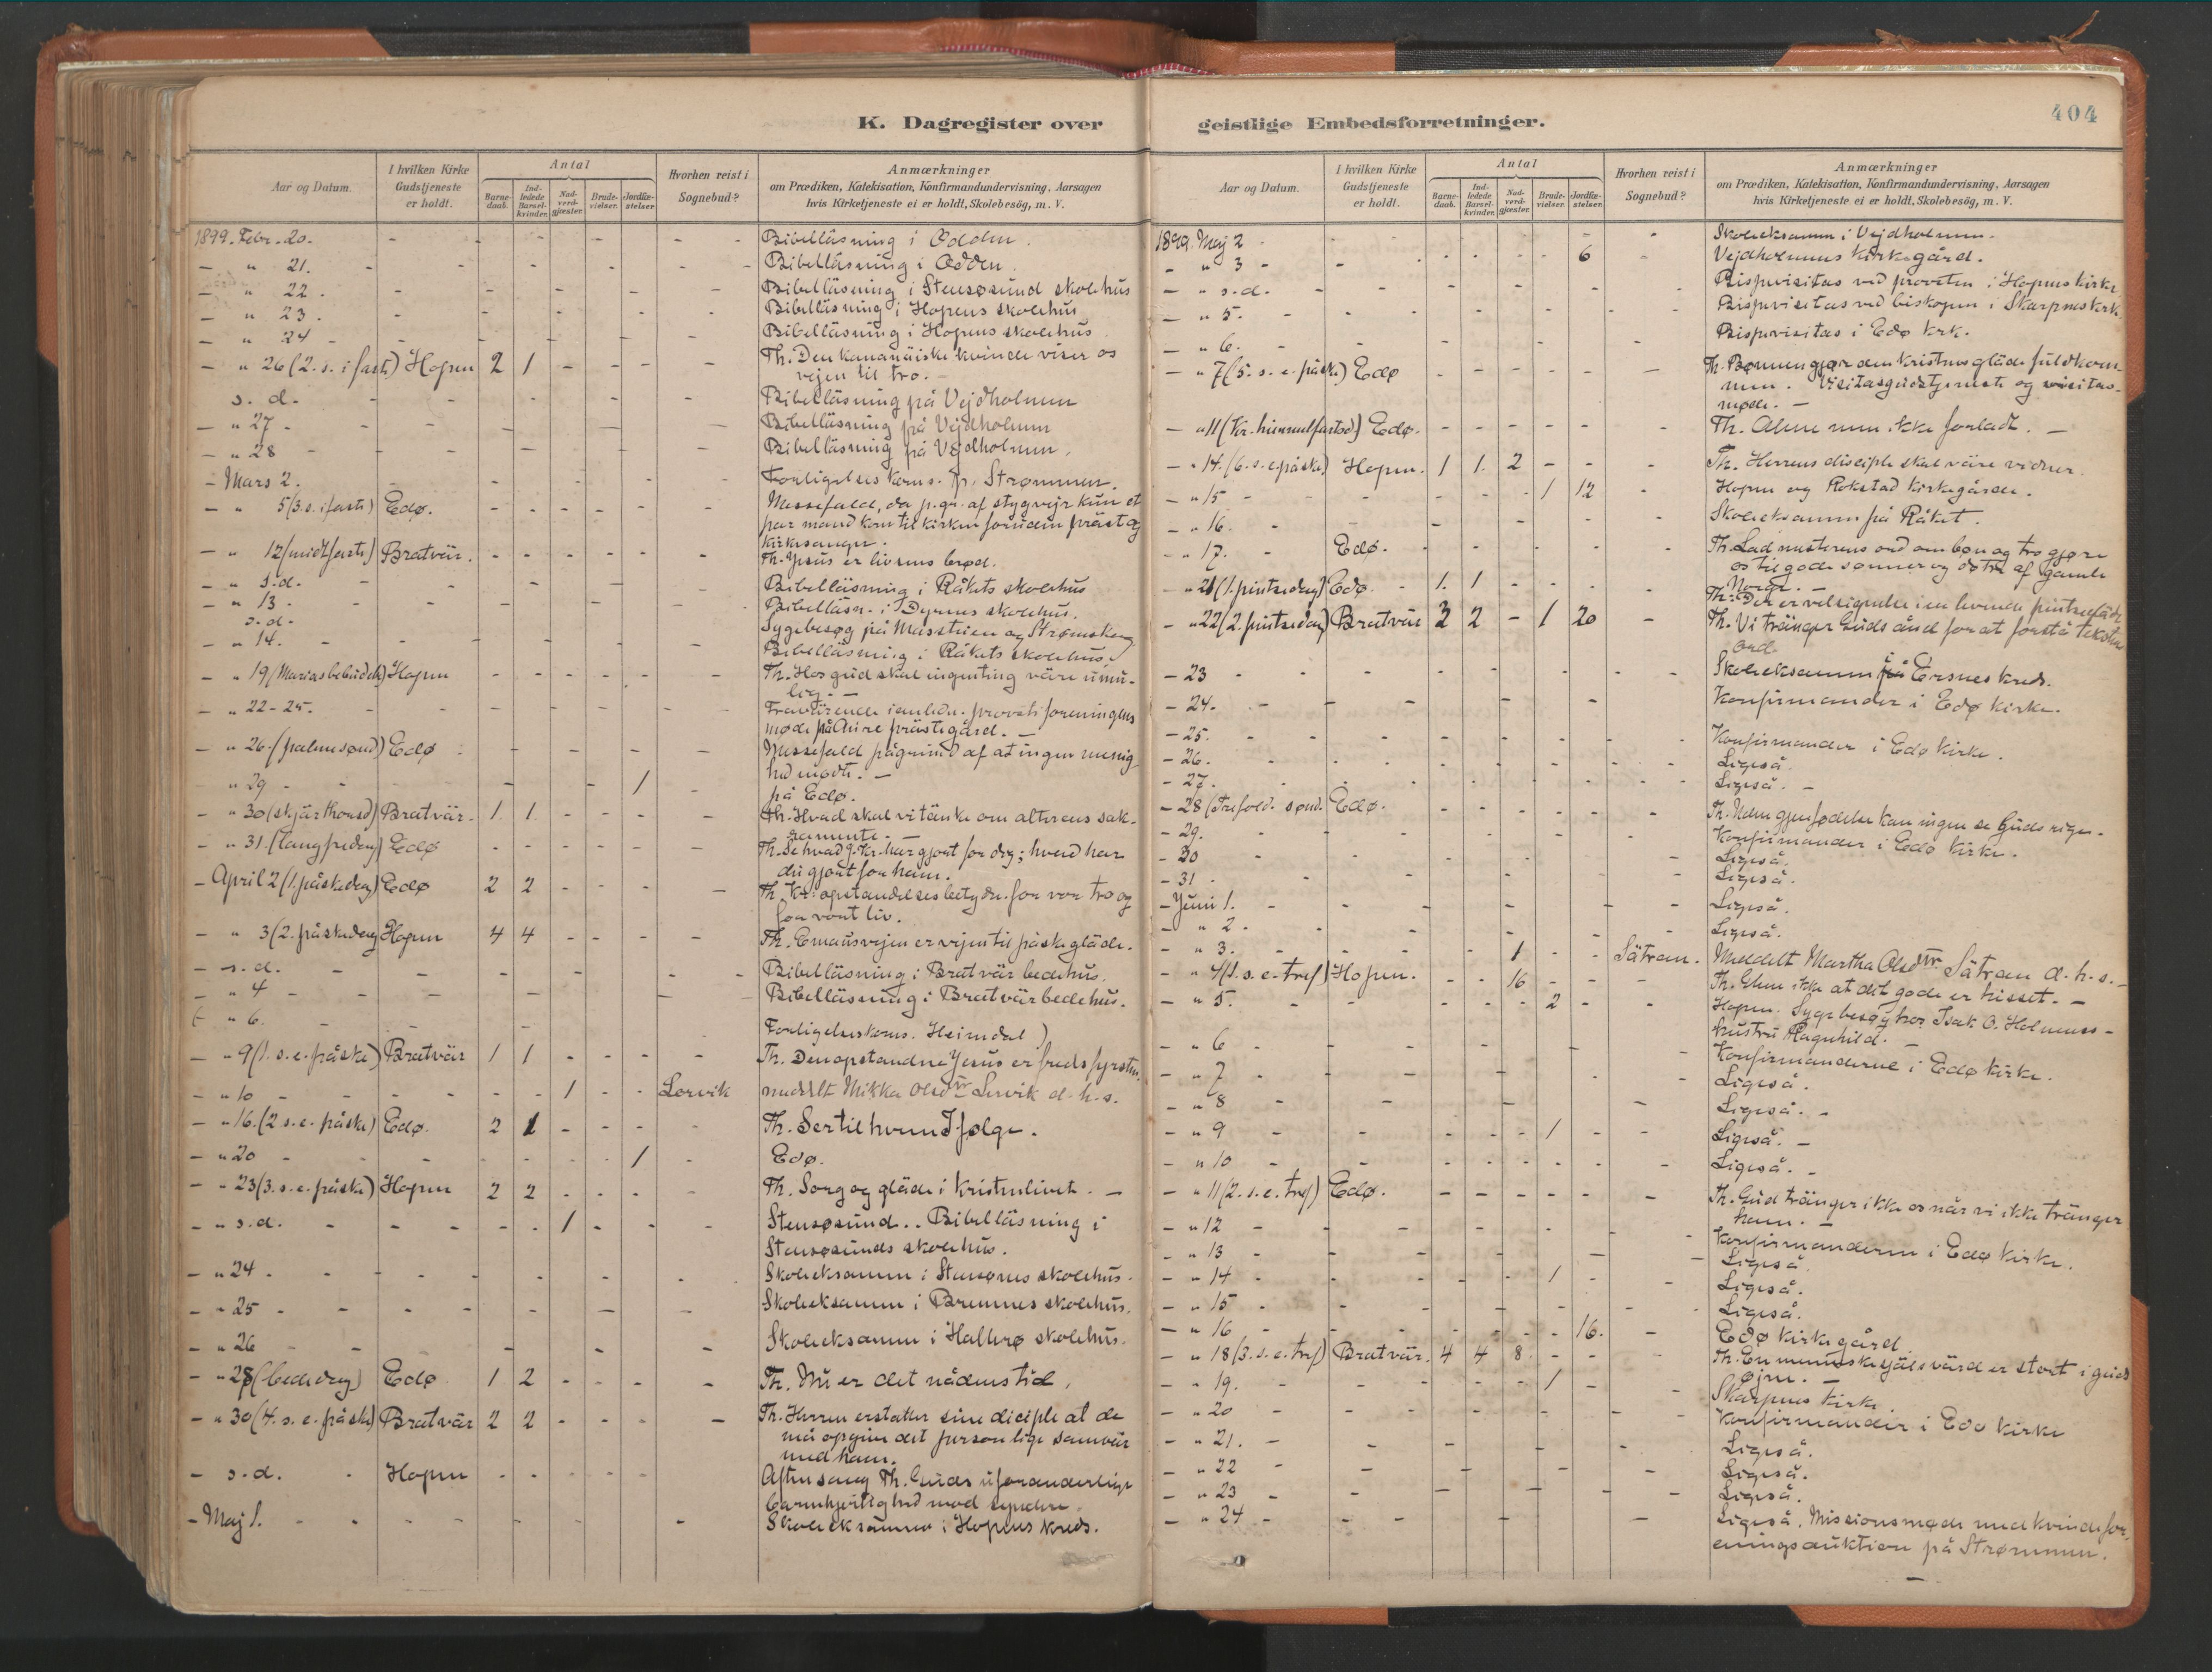 K. Dagregister over
Aar og Datum.
I hvilken Kirke Gudstjeneste er holdt.
Antal
Barne-daab.
Ind-ledede Barsel-kvinder.
Nad-verd-gjester.
Brude-vielser.
Jordfæ-stelser
Hvorhen reist i Sognebud?
Anmærkninger
om Prædiken, Katekisation, Konfirmandundervisning, Aarsagen
hvis Kirketjeneste ei er holdt, Skolebesøg, m. V.
1899. Febr. 20. - - - - - Bibelläsning i Odden.
- " 21. - - - - - Bibelläsning i Odden.
- " 22. - - - - - Bibelläsning i Stensøsund skolehus
- " 23. - - - - - Bibelläsning i Hopens skolehus
- " 24 - - - - - Bibelläsning i Hopens skolehus
- " 26 (2. s. i faste) Hopen 2 1 - - - - Th. Den kananäiske kvinde viser os
vejen til tro. -
s. d. - - - - - Bibelläsning på Vejdholmen
- " 27 - - - - - Bibelläsning på Vejdholmen
- " 28 - - - - - Bibelläsning på Vejdholmen.
- Mars 2. Forligelses koms. på Strømmen.
- " 5 (3. s. i faste) Edø. - - - - - - Messefald, da p. gr. af stygvejr kun et
par mand kom til kirken foruden präst og
kirkesanger.
- " 12 (midtfaste) Bratvär. - - - - - Th. Jesus er livsens brød.
- " s. d. - - - - Bibelläsning i Råkets skolehus
- " 13. - - - - - Bibelläsn. i Dyrnes skolehus.
s. d. - Sygebesøg på Masstuen og
- " 14. - - - - - Bibelläsning i Råkets skolehus.
- " 19 (Marias bebudels) Hopen - - - - - - Th. Hos gud skal ingenting väre umu-
lig. -
- " 22-25. - - - - - Fraværende i anledn. provstiforeningens
møde på Aure prästegård. -
- " 26. (palmesønd) Edø - - - - - Messefald på grund af at ingen menig
hed mødte. -
" 29 - - - - 1 - på Edø.
- " 30 (skjärthorsd) Bratvär. 1 1 - - - - Th. Hvad skal vi tänke om alterens sak-
ramente. -
- " 31. (langfredag) Edø - - - - - - Th. Se hvad J. Kr. har gjort for dig; hvad har
du gjort for ham.
- April 2 (1. påskedag) Edø 2 2 - - - - Th. Kr. opstandelses betydn. for vor tro og
for vort liv.
- " 3 (2. påskedag Hopen 4 4 - - - - Th. Emausvejen er vejen til påskegläde.
- s. d. - - - - - Bibelläsning i Bratvär bedehus.
- " 4 - - - - - Bibelläsning i Bratvär bedehus.
( " 6. - - Forligelseskoms. Heimdal )
- " 9 (1. s. e. påske) Bratvär 1 1 - - - - Th. Den opstandne Jesus er fredsfyrsten.
- " 10 - - - - 1 - - Lervik meddelt Mikka Olsdtr Lervik d. h. s.
- " 16. (2 s. e. påske) Edø. 2 1 - - - - Th. Ser til hvem I følge.
- " 20 - - - - - - 1 - Edø.
- " 23 (3. s. e. påske) Hopen 2 2 - - - - Th. Sorg og gläde i kristenlivet. -
- " s. d. - - - - 1 - - - Stensøsund. . Bibelläsning i
Stensøsunds skolehus.
- " 24 - - - - - Skoleeksamen i Stensønes skolehus.
- " 25 - - - - - Skoleeksamen i Bremnes skolehus.
- " 26 - - - - Skoleeksamen i Hallerø skolehus.
- " 28 (bededag) Edø 1 2 - - - - Th. Nu er det nådens tid.
- " 30 (4. s. e. påske) Bratvär 2 2 - - - - Th. Herren erstatter sine diciple at de
må opgive det personlige samvär
med ham.
- s. d. - Hopen - - - - Aftensang Th. Guds uforanderlige
barmhjertighed mod syndere.
- Maj 1. - - - - - - Skoleeksamen i Hopens kreds.
geistlige Embedsforretninger.
404
Aar og Datum.
I hvilken Kirke Gudstjeneste er holdt.
Antal
Barne-daab.
Ind-ledede Barsel-kvinder.
Nad-verd-gjester.
Brude-vielser.
Jordfæ-stelser.
Hvorhen reist i Sognebud?
Anmærkninger
om Prædiken, Katekisation, Konfirmandundervisning, Aarsagen
hvis Kirketjeneste ei er holdt, Skolebesøg, m. V.
1899. Maj 2 - - - Skoleeksamen i Vejdholmen.
- " 3 - - - - - 6 - Vejdholmens kirkegård.
- " s. d. - - - - - Bispevisitas ved provsten i Hopens kirke
- " 5. - - - - - Bispevisitas ved biskopen i Skarpnes kirk
- " 6. - - - - - Bispevisitas i Edø kirk.
- " 7 (5. s. e. påske) Edø - - - - - - Th. Bønnen gjør den kristnes gläde fuldkom-
men. Visitasgudstjeneste og visitas-
møde. -
- " 11 (Kr. himmelfartsd) Edø. - - - - - - Th. Alene men ikke forladt. -
- " 14. (6. s. e. påske) Hopen. 1 1. 2 - - - Th. Herrens disciple skal väre vidner.
- " 15 - - - - - 1 12 - Hopen og Rokstad kirkegårde.
- " 16. - - - - - Skoleeksamen på Råket.
- " 17. - Edø. - - - - - Th. Lad mesterens ord om bøn og tro gjøre
os til gode sønner og døtre af gamle
Norge. -
- " 21 (1. pintsedag) Edø - 1. 1 - - - - Th. Der er velsignelse i en levende pintsegläde
- " 22 (2. pintsedag) Bratvär 3 2 - 1 20 - Th. Vi tränger Guds ånd for at forstå tekstens
ord.
- 23 - - - - - Skoleeksamen i Ersnes kreds.
- 24. - - - - - Konfirmander i Edø kirke.
- 25. - - - - - Konfirmander i Edø kirke.
- 26. - - - - - Ligeså.
- 27. - - - - - Ligeså. -
- 28 (Trefold. sønd. Edø. - - - - - - Th. Uden gjenfødelse kan ingen se Guds rige.
- 29. - - - - - Konfirmander i Edø kirke.
- 30 - - - - - Ligeså.
- 31 - - - - - Ligeså.
- Juni 1. - - - - - Ligeså.
- " 2 - - - - - Ligeså.
- " 3. - - - - 1 - - Sätran. Meddelt Martha Olsdtr Sätran d. h. s. -
- " 4 (1. s. e. tref) Hopen. - - 16 - - - Th. Glem ikke at det gode er hisset. -
- " 5. - - - - - 2 - - Hopen. Sygebesøg hos Isak O. Holmens
hustru Ragnhild. -
- " 6 - - - - - Konfirmanderne i Edø kirke.
- " 7 - - - - - Ligeså.
- " 8 - - - - - Ligeså. -
- " 9 - - - - - 1 - - Ligeså. -
- " 10 - - - - - Ligeså. -
- " 11 (2. s. e. tref) Edø. - - - - - - Th. Gud tränger ikke os når vi ikke tränger
ham. -
- " 12 - - - - - Konfirmanderne i Edø kirke.
- " 13 - - - - - Ligeså.
- " 14 - - - - - 1 - - Ligeså.
- " 15 - - - - - Ligeså.
- " 16 - - - - - - 16. - Edø kirkegård.
- " 18 (3. s. e. tref) Bratvär. 4 4 8 - - - Th. En menneskesjäls värd er stort i guds
øjne. -
- " 19. - - - - - 1 - - Skarpnes kirke.
- " 20 - - - - - Konfirmander i Edø kirke
- " 21. - - - - - Ligeså.
- " 22 - - - - - Ligeså.
- " 23 - - - - - Ligeså.
- " 24 - - - - - Ligeså. Missionsmøde med kvindefor-
eningsauktion på Strømmen.